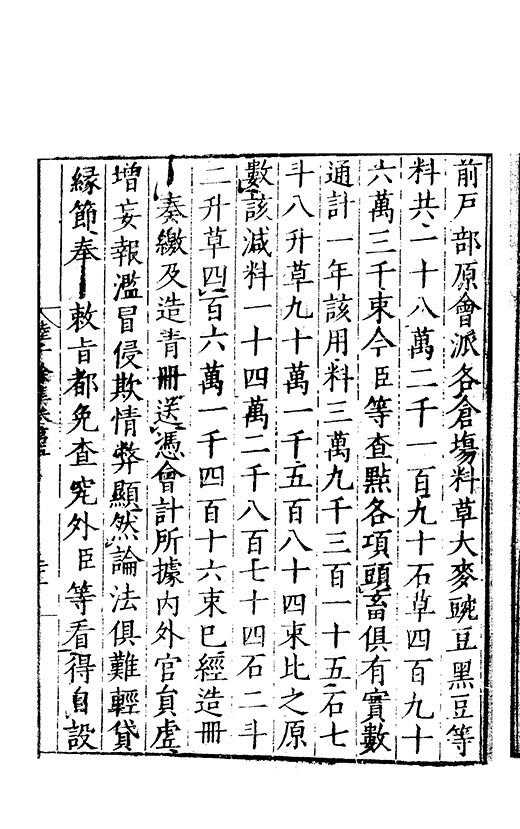 前戶部原會派各倉塲料草大麥豌豆黑豆等
料共二十八萬二千一百九十石草四百九十
六萬三千束今臣等查點各項頭畜俱有實數
通計一年該用料三萬九千三百一十五石七
斗八升草九十萬一千五百八十四束比之原
數該減料一十四萬二千八百七十四石二斗
二升草四百六萬一千四百十六束已經造冊
奏繳及造青冊送憑會計所據內外官員虛
增妄報濫冒侵欺情弊顯然論法俱難輕貸
緣節奉
敕旨都免查究外臣等看得自設